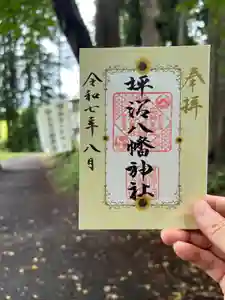 奉拝
坪沼八幡神社
令和七年八月